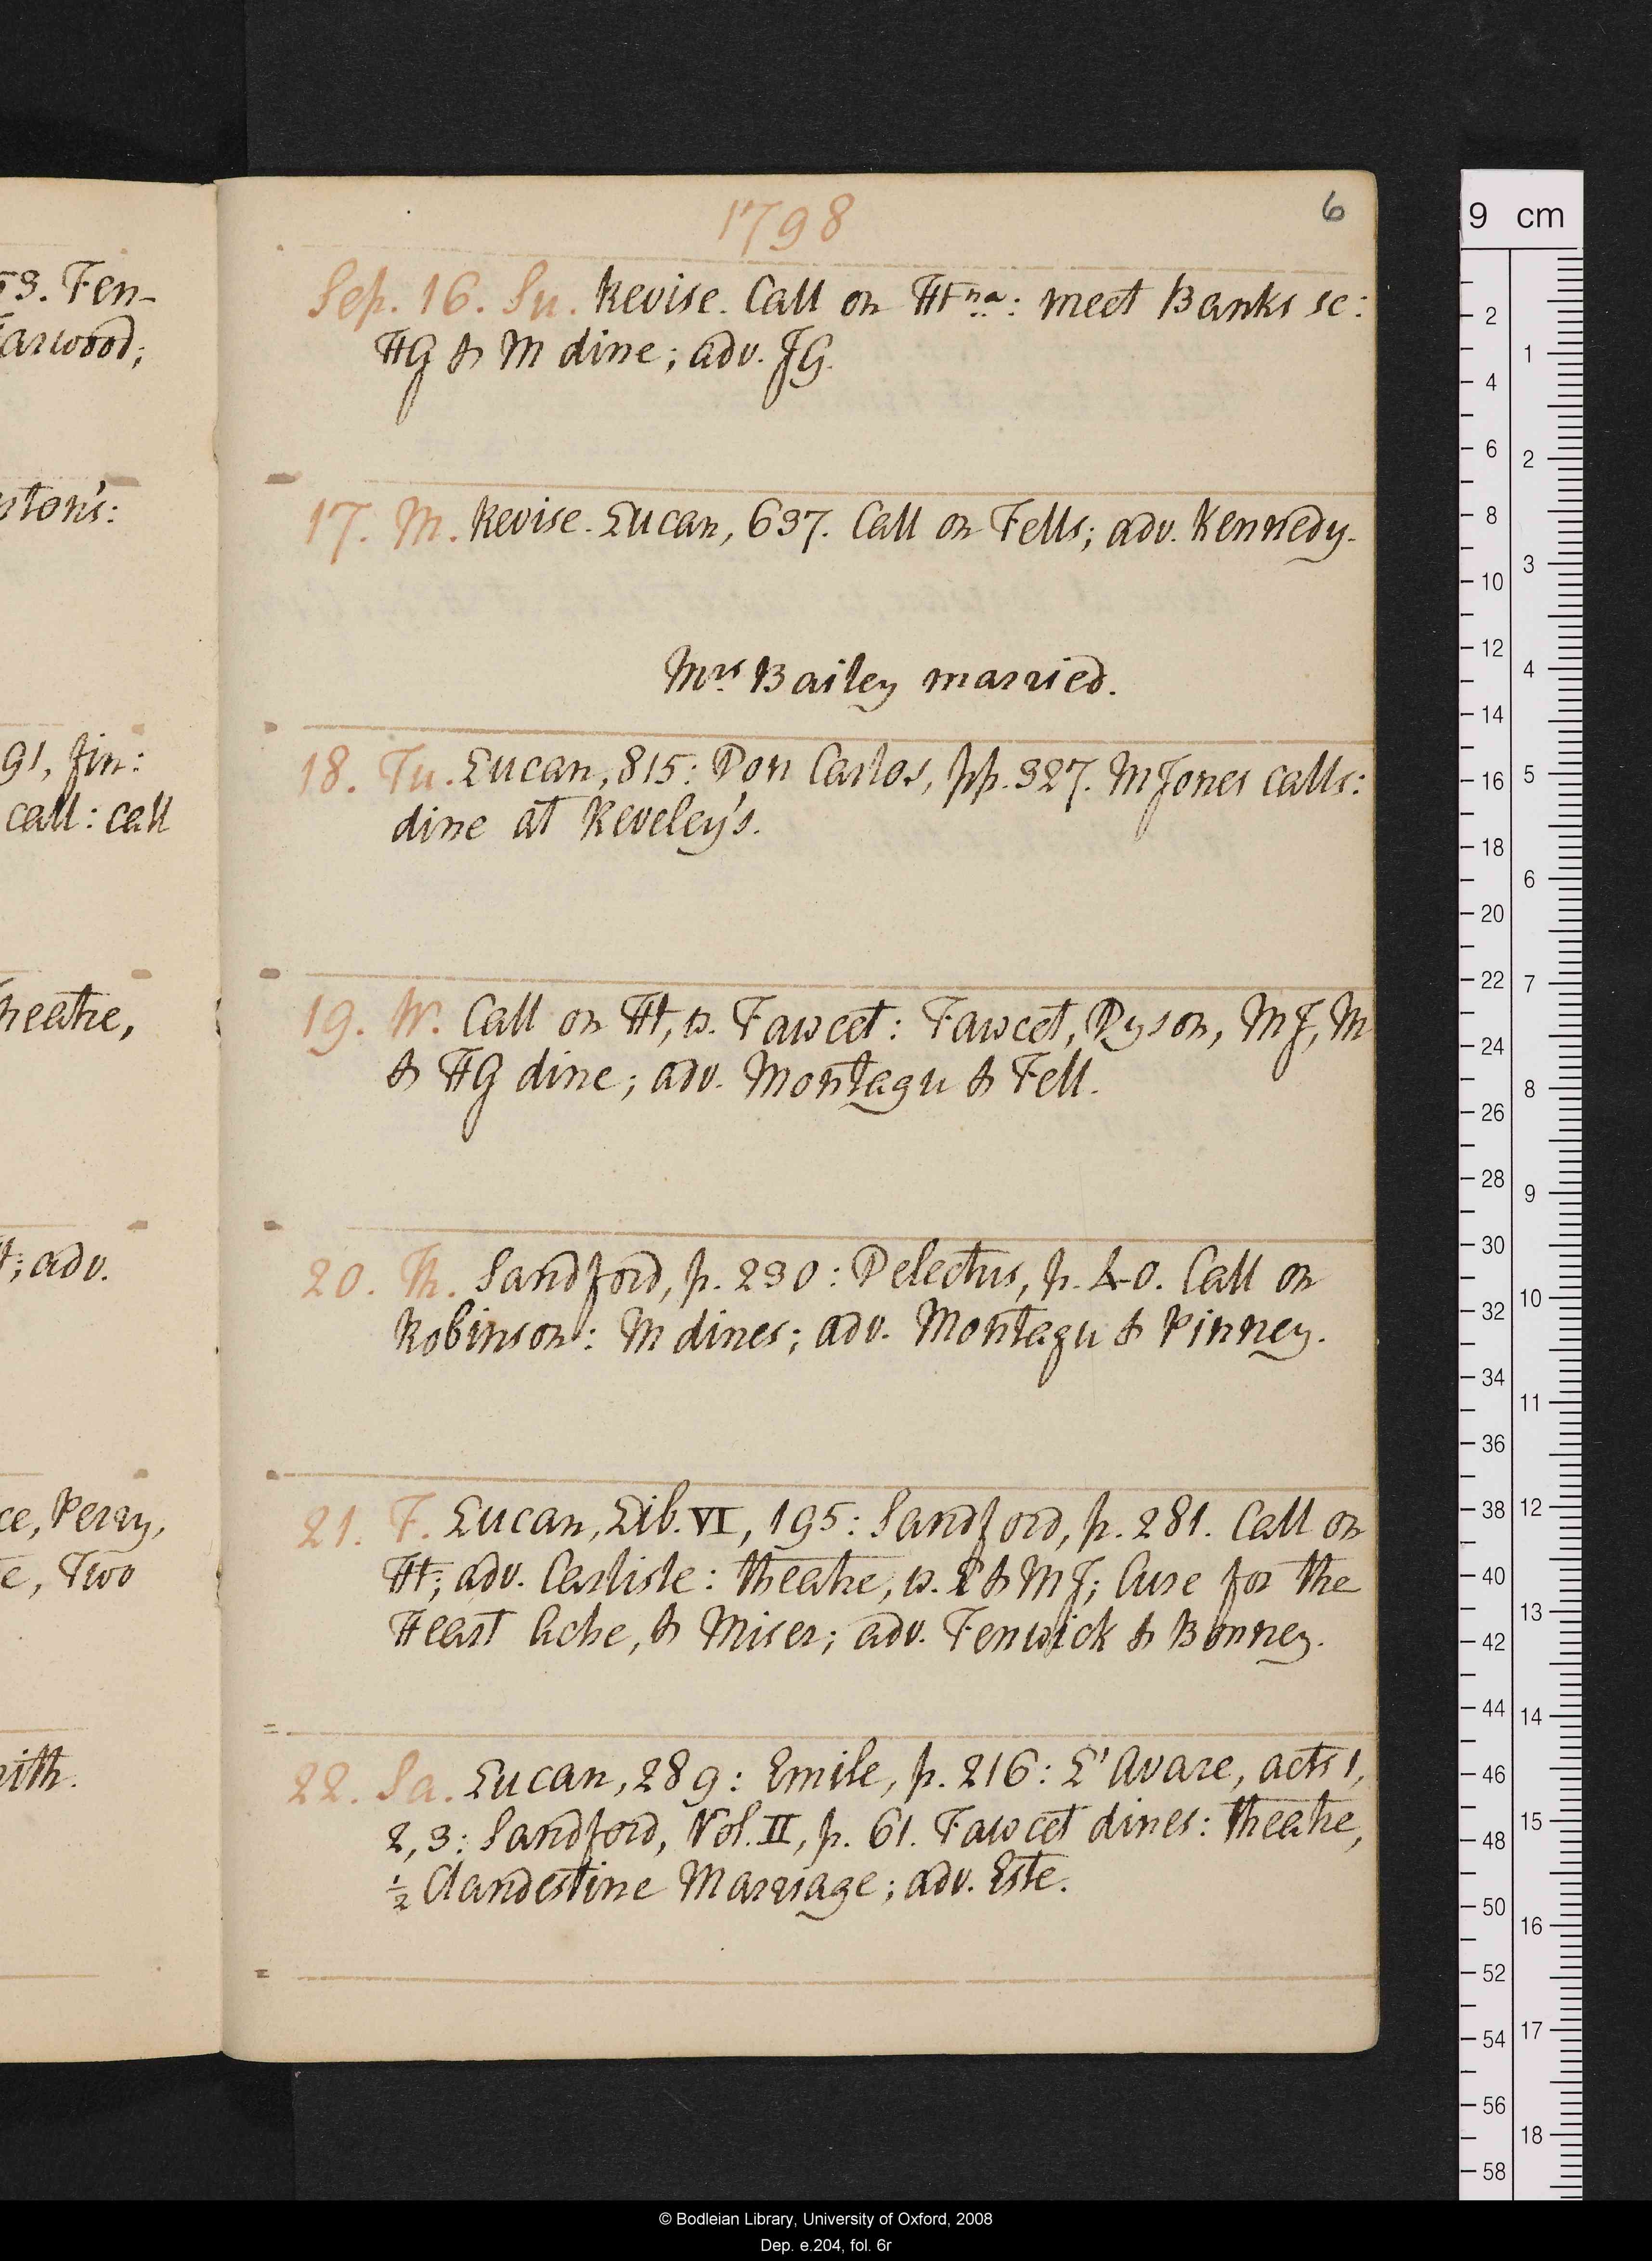 1798
6
Sep. 16. Su. Revise. Call on Ht na: meet Banks sc:
HG & M dine; adv. JG.
17. M. Revise. Lucan, 697. Call on Fells; adv. Kennedy.
Mrs Bailey married.
18. Tu. Lucan, 815: Don Carlos, pp. 327. M Jones calls:
dine at Reveley's.
19. W. Call on Ht, w. Fawcet: Fawcet, Dyson, MJ, M
& HG dine; adv. Montagu & Fell.
20. Th. Sandford, p. 230: Delectus, p. 40. Call on
Robinson: M dines; adv. Montagu & Pinney.
21. F. Lucan, Lib. VI, 195: Sandford, p. 281. Call on
Ht; adv. Carlisle: theatre, w. L & MJ; Cure for the
Heart Ache, & Miser; adv. Fenwick & Bonney.
22. Sa. Lucan, 289: Emile, p. 216: L'Avare, acts 1,
2, 3: Sandford, Vol. II, p. 61. Fawcet dines: theatre,
½ Clandestine Marriage; adv. Este.
Fen-
arwood;
ston's:
91, fin:
call: call
heatre,
t; adv.
ce, Perry,
e, Two
ith.
9 cm
2
4
6
8
10
12
14
16
18
20
22
24
26
28
30
32
34
36
38
40
42
44
46
48
50
52
54
56
58
1
2
3
4
5
6
7
8
9
10
11
12
13
14
15
16
17
18
© Bodleian Library, University of Oxford, 2008
Dep. e.204, fol. 6r